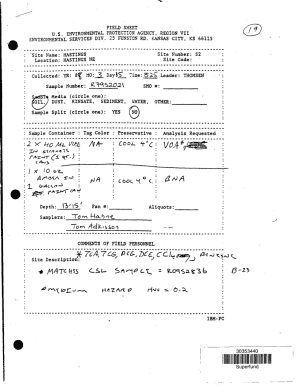 19
FIELD SHEET
U.S. ENVIRONMENTAL PROTECTION AGENCY, REGION VII
ENVIRONMENTAL SERVICES DIV. 25 FUNSTON RD. KANSAS CITY, KS 66115
Site Name: HASTINGS Site Number: S2
Location: HASTINGS NE Site Code:
Collected: YR: MO: 3 Day: 15 Time: 8:25 Leader: THOMSEN
Sample Number: R7952021 SMO #:
Sample Media (circle one):
SOIL, DUST, RINSATE, SEDIMENT, WATER, OTHER:
Sample Split (circle one): YES NO
Sample Container : Tag Color : Preservative : Analysis Requested
2 X 40 ML VOA NA COOL 4°C VOA
IN
PAINT (1 QT.)
1 X 10 OZ
NA COOL 4°C BNA
1 GALLON
PAINT CAN
Depth: 13-15' Pan #: Aliquots:
Samplers: Tom
Tom Adkisson
COMMENTS OF FIELD PERSONNEL
Site Description: * TCA, TCE, PCE, DCE, CCl4, BENZENE
* MATCHS CSL SAMPLE = R0952836 B-23
MEDIUM HAZARD HNU = 0.2
IBM-PC
30353440
Superfund